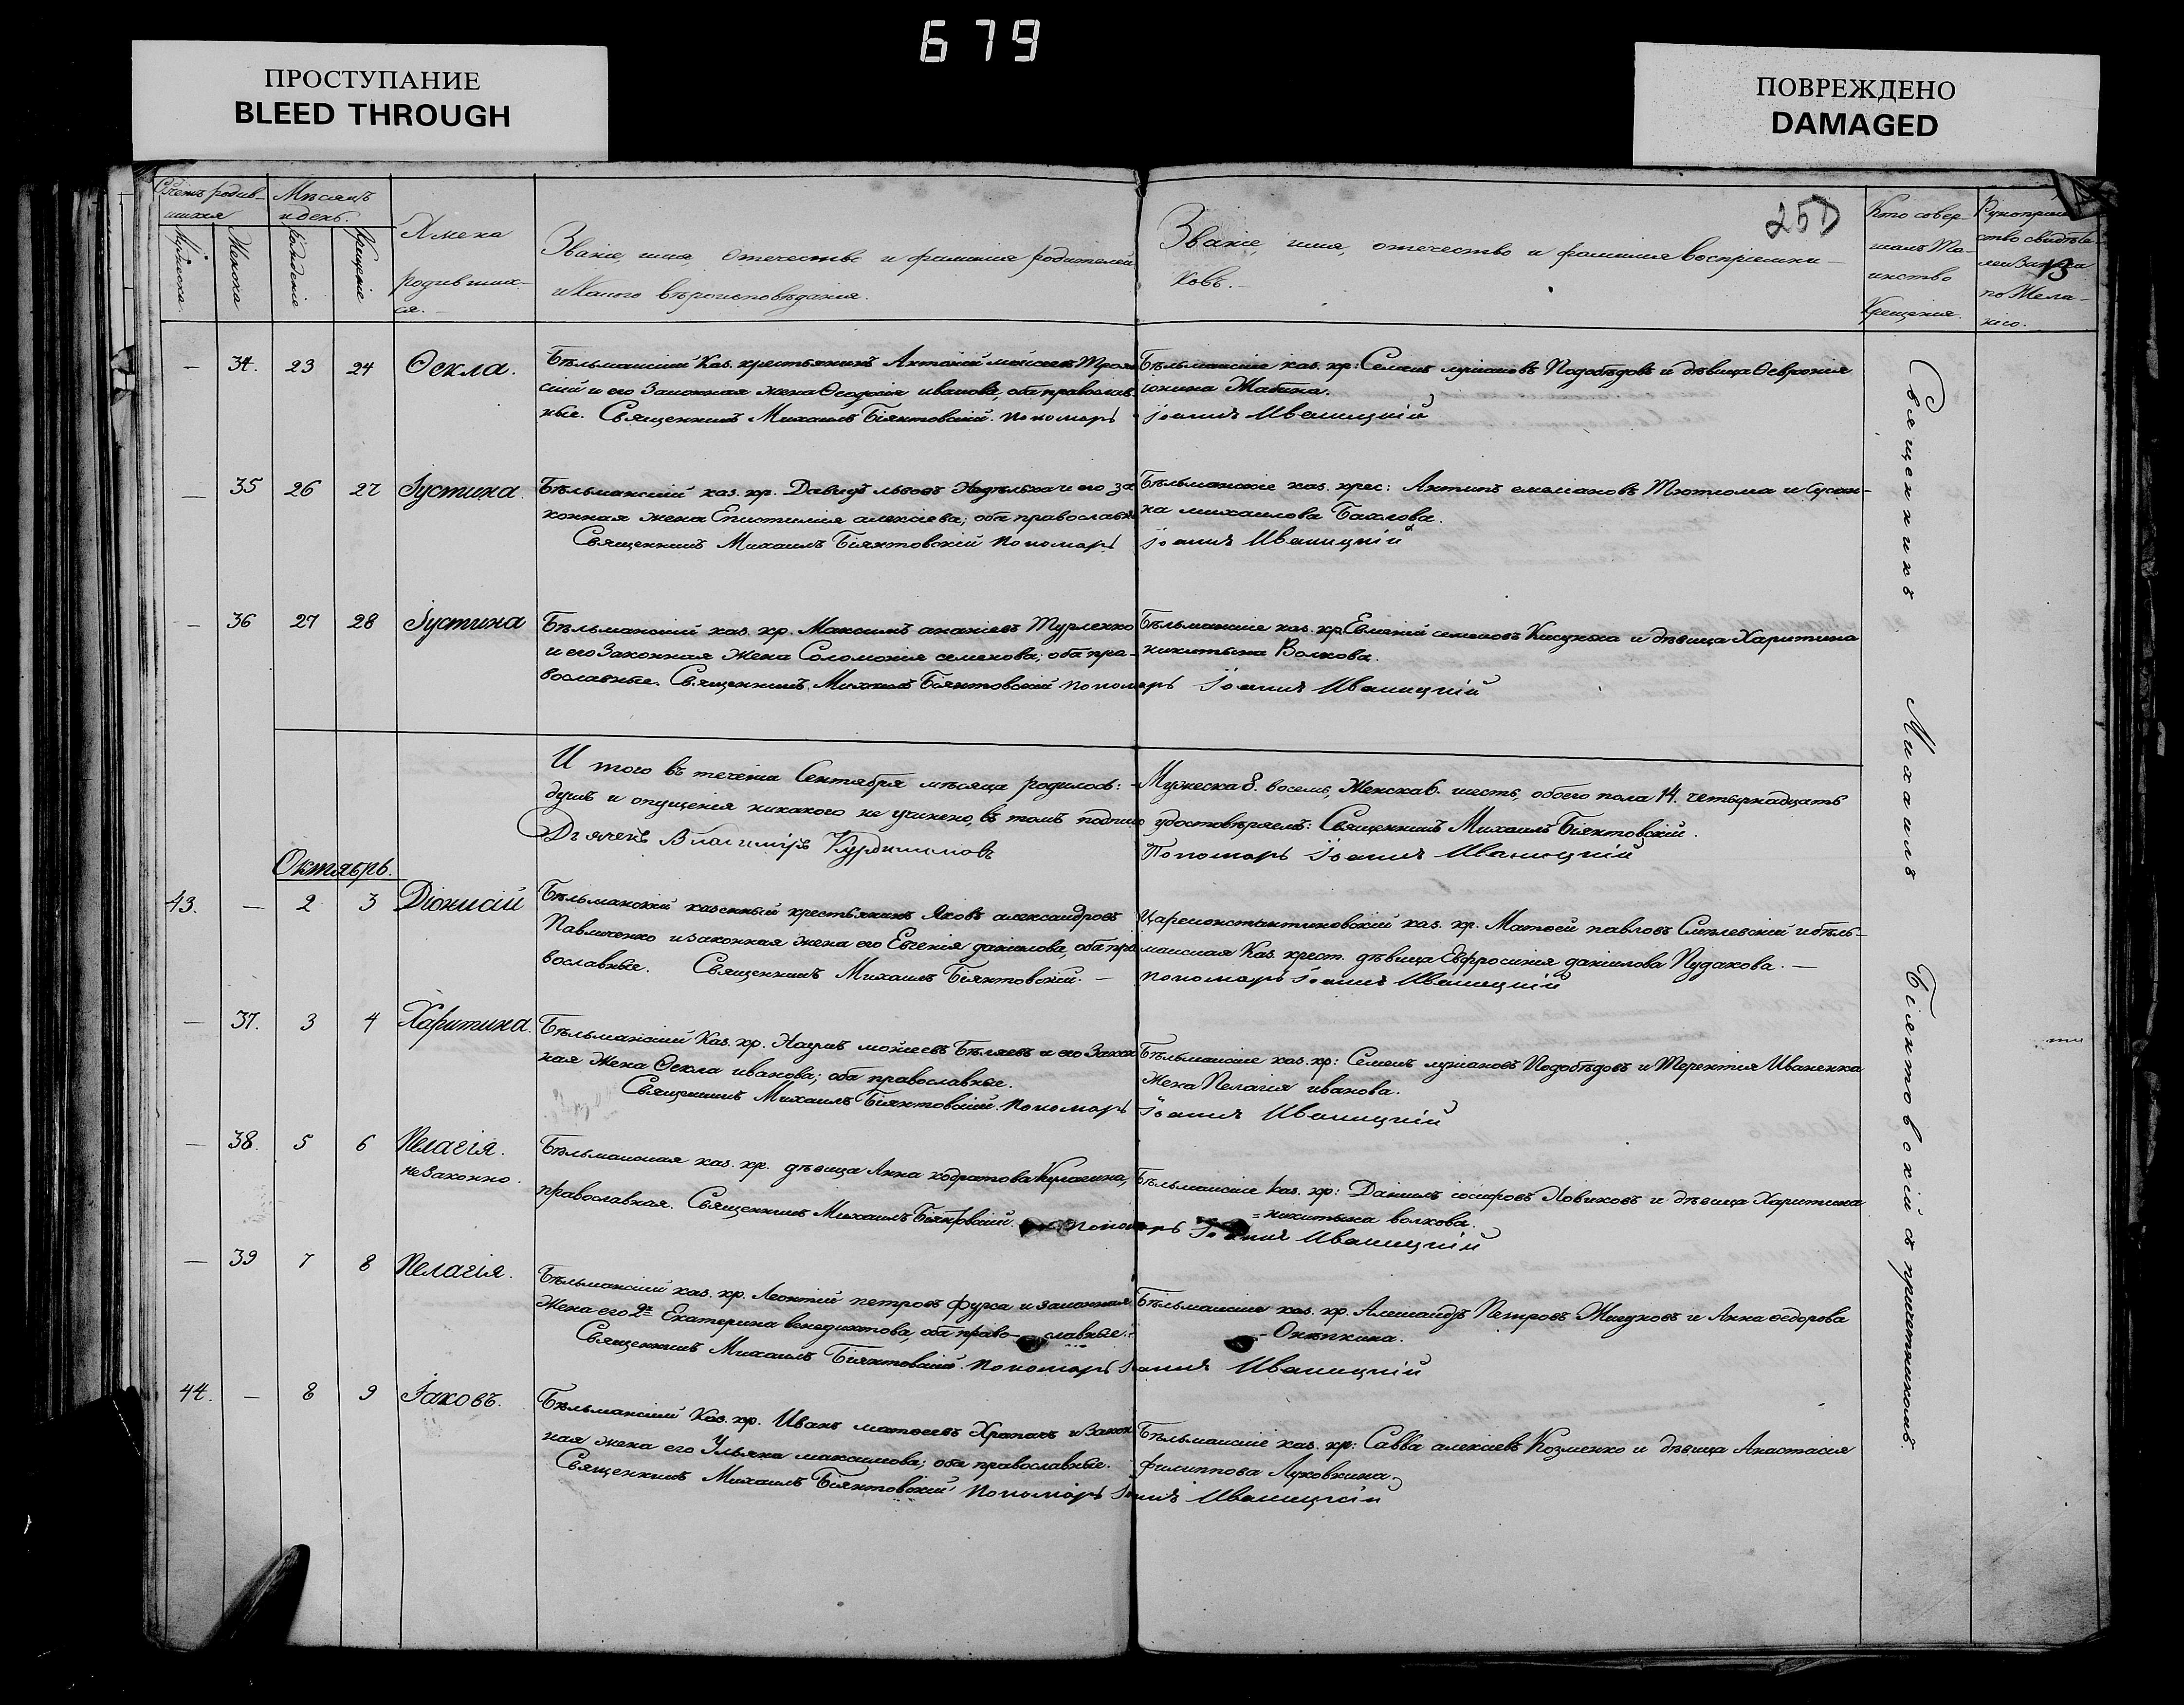 679
ПРОСТУПАНИЕ
BLEED THROUGH
ПОВРЕЖДЕНО
DAMAGED
Счетъ родив-
шихся
Мужеска.
Женска
Мѣсяцъ
и день.
рожденіе
крещеніе
Имена
родивших-
ся.
Званіе, имя, отечество и фамилія родителей
и какого вѣроисповѣданія.
Званіе, имя, отечество и фамилія воспріемни-
ковъ.
250
Кто совер-
шалъ Та-
инство
Крещенія.
по Жела-
нію.
13
— 34. 23 24 Ѳекла.
Бѣльманскій Каз. крестьянинъ Антоній моисеевъ
и его Законная жена иванова, оба православ-
ные. Священникъ Михаилъ Біянтовскій. пономарь
Бѣльманскіе каз. кр: Семенъ лукіановъ Подобѣдовъ и дѣвица Ѳевронія
Жабина.
Іоаннъ Иваницкій
— 35 26 27 Іустина.
Бѣльманскій каз. кр. Давидъ львовъ и его за
конная жена Епистимія алексіева; оба православн
Священникъ Михаилъ Біянтовскій пономарь
Бѣльманскіе каз. крес: Антипъ емеліановъ Тютюма и Сусан-
на михаилова Бахлова.
Іоаннъ Иваницкій
— 36 27 28 Іустина
Бѣльманскій каз. кр. Максимъ ананіевъ Турленко
и его Законная жена Соломонія семенова; оба пра-
вославные. Священникъ Михаилъ Біянтовскій пономарь
Бѣльманскіе каз. кр Евменій семеновъ и дѣвица Харитина
никитина Волкова.
Іоаннъ Иваницкій
И того въ теченіи Сентября мѣсяца родилось: Мужеска 8. восемь, Женска 6. шесть, обоего пола 14. четырнадцать
душъ и опущенія никакого не учинено, въ томъ подписо удостовѣряемъ: Священникъ Михаилъ Біянтовскій.
Дьячекъ Владиміръ
Пономарь Іоаннъ Иваницкій
Октябрь.
43. — 2 3 Діонисій
Бѣльманскій казенный крестьянинъ Яковъ александровъ
Павличенко и законная жена его Евгенія даніилова, оба пра
вославные. Священникъ Михаилъ Біянтовскій. —
Цареконстантиновскій каз. кр. Матѳей павловъ и бѣль-
манская Каз. крест. дѣвица Евфросинія даніилова Пудакова. —
пономарь Іоаннъ Иваницкій
— 37. 3 4 Харитина.
Бѣльманскій Каз. кр. Наумъ моисеевъ Бѣляевъ и его Закон
ная Жена Ѳекла иванова; оба православные.
Священникъ Михаилъ Біянтовскій. пономарь
Бѣльманскіе каз. кр: Семенъ лукіановъ Подобѣдовъ и Терентія Иваненка
Жена Пелагія иванова.
Іоаннъ Иваницкій
— 38. 5 6 Пелагія.
незаконно.
Бѣльманская каз. кр. дѣвица Анна кодратова Кулагина,
православная. Священникъ Михаилъ Біянтовскій. пономарь
Бѣльманскіе каз. кр: Даніилъ іосифовъ Новиковъ и дѣвица Харитина
никитина волкова.
Іоаннъ Иваницкій
— 39 7 8 Пелагія.
Бѣльманскій каз. кр. Леонтій петровъ фурса и законная
Жена его 2я Екатерина венедиктова, оба право- славные.
Священникъ Михаилъ Біянтовскій. пономарь
Бѣльманскіе каз. кр. Александръ Петровъ и Анна ѳедорова
Іоаннъ Иваницкій
44. — 8 9 Іаковъ.
Бѣльманскій Каз. кр. Иванъ матѳеевъ Храпачъ и Закон
ная жена его Ульяна максимова; оба православные.
Священникъ Михаилъ Біянтовскій пономарь
Бѣльманскіе каз. кр: Савва алексіевъ Козменко и дѣвица Анастасія
филиппова Луковкина.
Іоаннъ Иваницкій
Священникъ Михаилъ Біянтовскій съ причетникомъ.